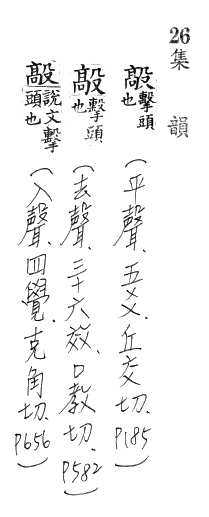 26 集韻
毃 擊頭也 (平聲、五爻、丘交切、P185)
毃 擊頭也 (去聲、三十六效、口教切、P582)
毃 說文擊頭也 (入聲、四覺、克角切、P656)